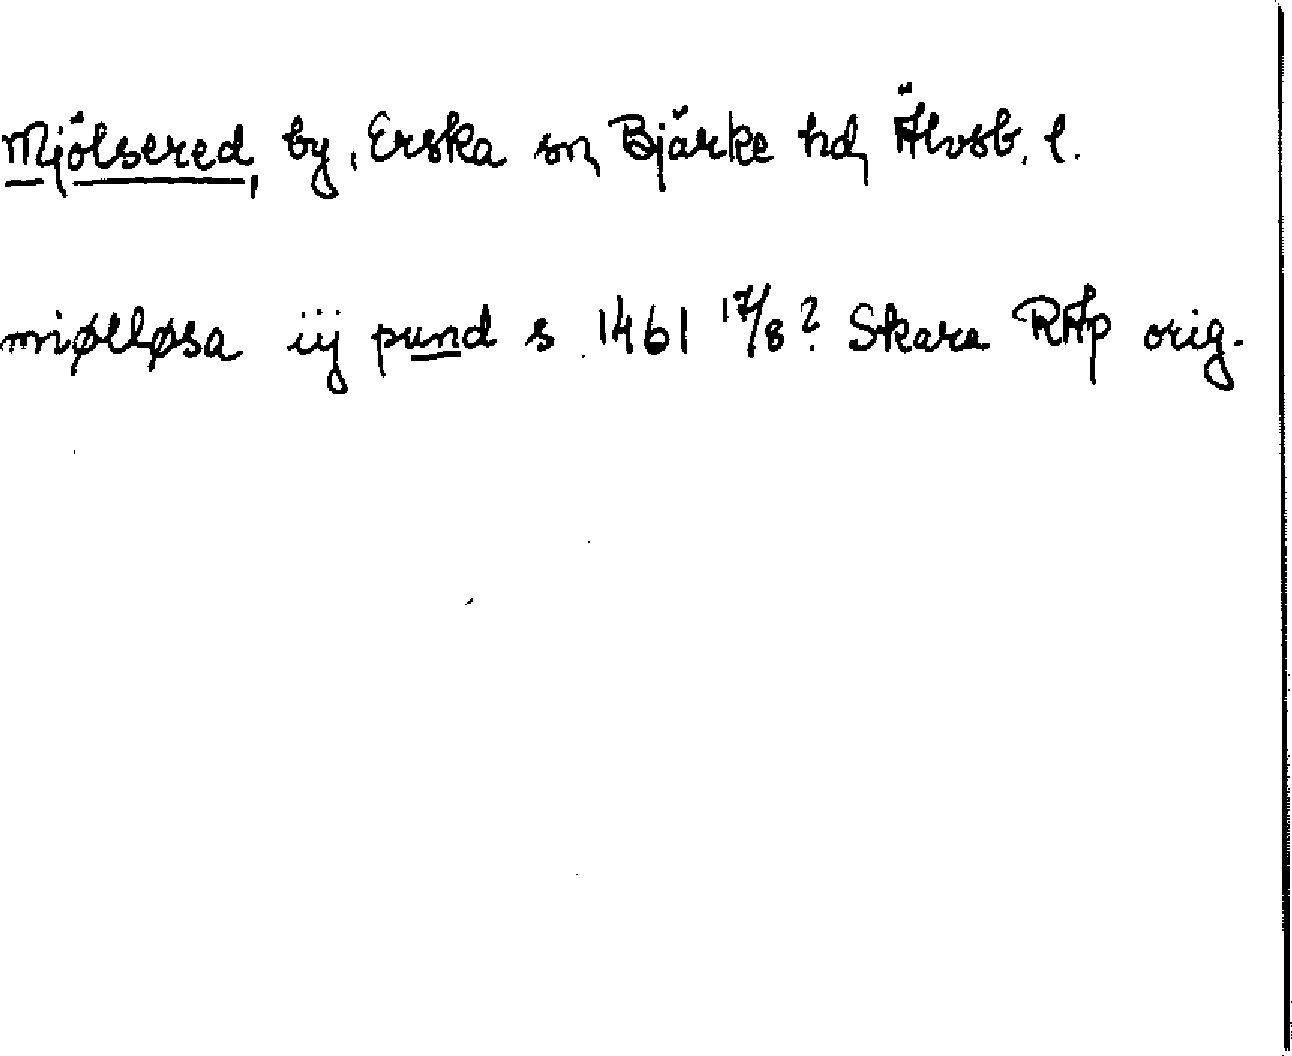 Mjölsered, by, Erska sn, Bjärke hd, Älvsb. l.
miølløsa iij pund s 1461 17/8? Skara RAp orig.